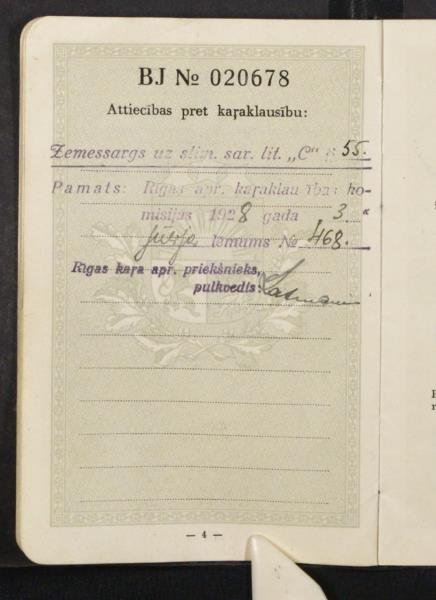 BJ № 020678
Attiecības pret kaŗaklausību:
Zemessargs uz slim. sar. lit. „C“ p. 55.
Pamats: Rīgas apr. kaŗaklausības ko-
misijas 1928 gada „3.“
jūlija lēmums № 468.
Rīgas kaŗa apr. priekšnieks,
pulkvedis:
— 4 —